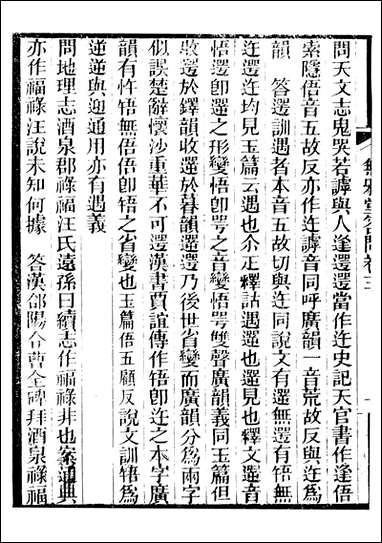 無邪堂答問卷三
問天文志鬼哭若謼與人逢遻遻當作迕史記天官書作逢俉
索隱俉音五故反亦作迕謼音同呼廣韻一音荒故反與迕同
韻　答遻訓遇者本音五故切與迕同說文有遻無遌有啎無
迕遻迕均見玉篇云遇也尒疋釋詁遇遻也遻見也釋文遻音
悟遌卽遻之形變悟卽咢之音變悟咢雙聲廣韻義同玉篇但
收遌於鐸韻收遻於暮韻遻遌乃後世省變而廣韻分爲兩字
似誤楚辭懷沙重華不可遻漢書賈誼傳作啎卽迕之本字廣
韻有忤啎無俉俉卽啎之省變也玉篇俉五顧反說文訓啎爲
逆逆與迎通用亦有遇義
問地理志酒泉郡祿福汪氏遠孫曰續志作福祿非也案通典
亦作福祿汪說未知何據　答漢郃陽令曹全碑拜酒泉祿福